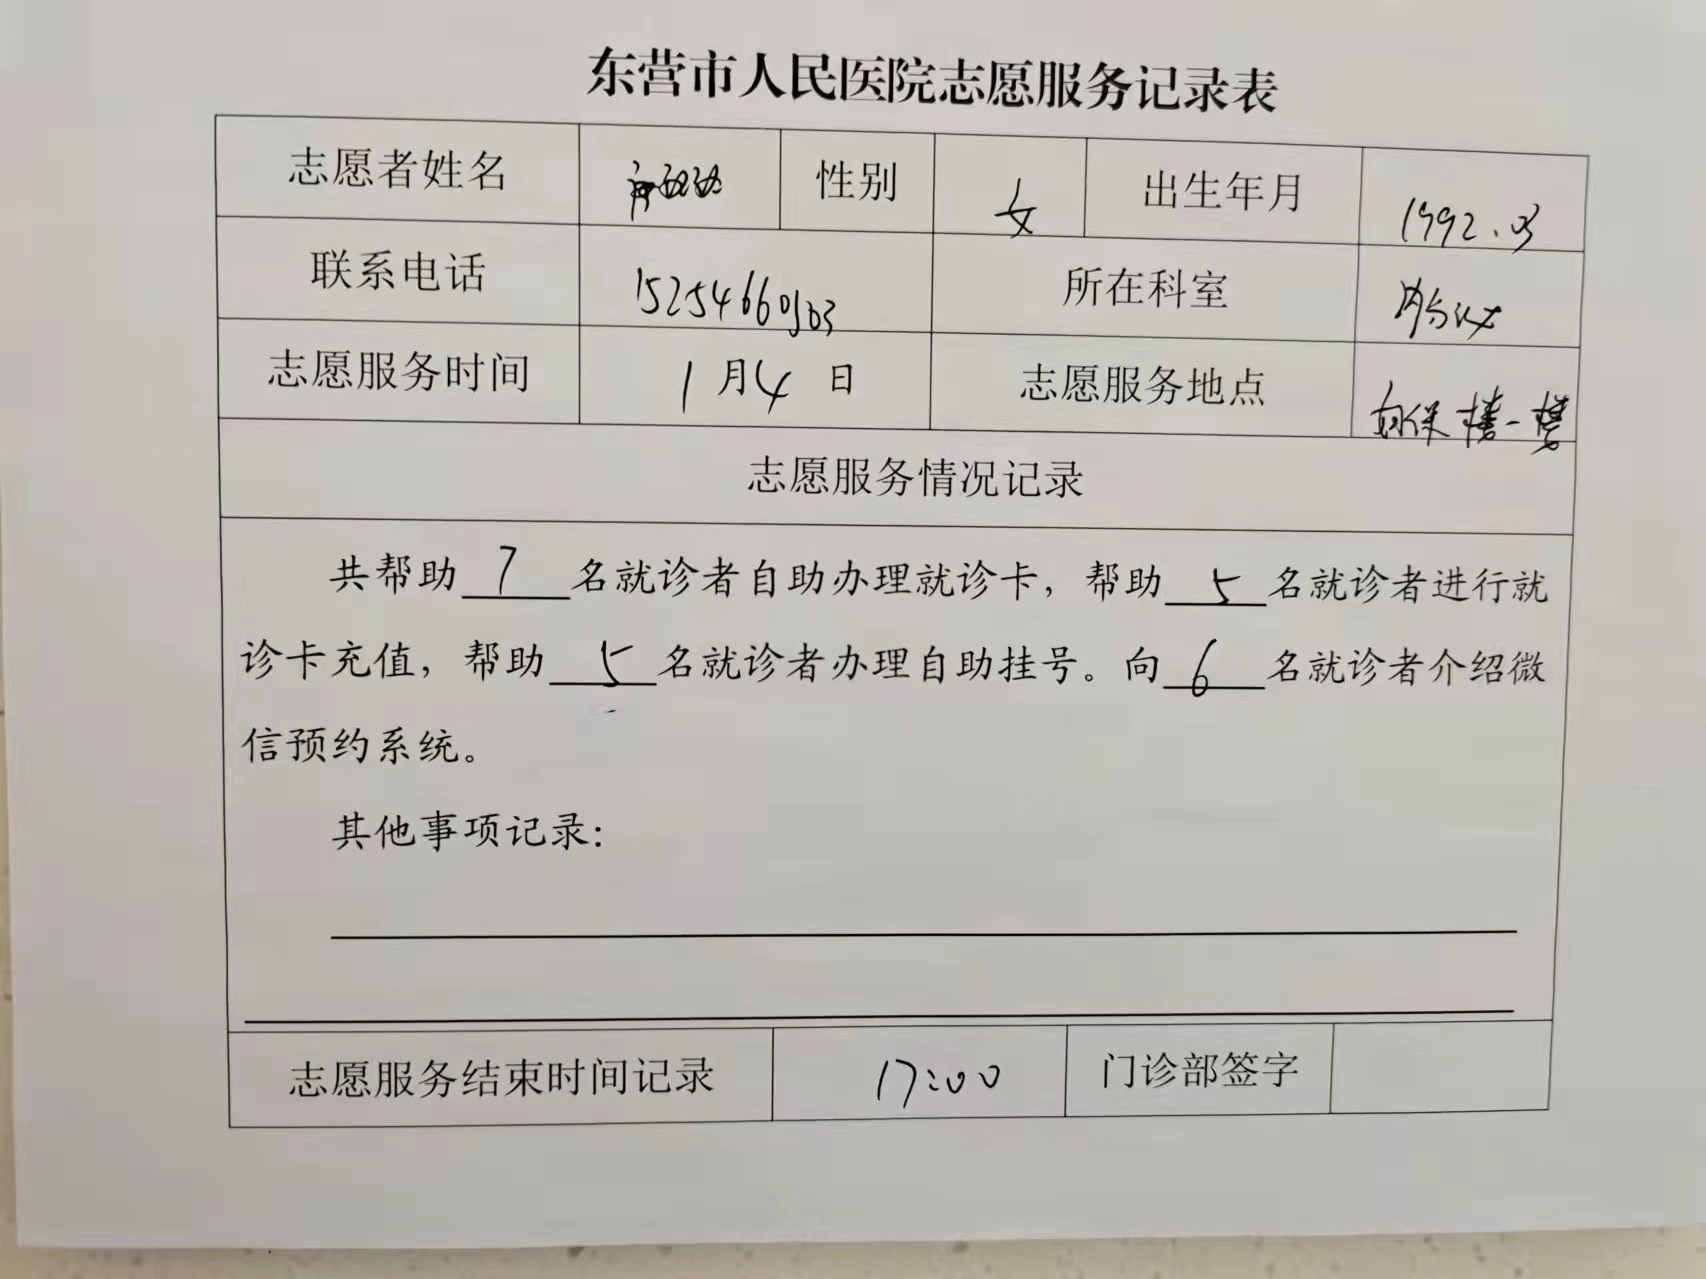 东营市人民医院志愿服务记录表
志愿者姓名 性别 女 出生年月 1992.03
联系电话 15254660503 所在科室
志愿服务时间 1月4日 志愿服务地点 妇保楼一楼
志愿服务情况记录
共帮助 7 名就诊者自助办理就诊卡，帮助 5 名就诊者进行就
诊卡充值，帮助 5 名就诊者办理自助挂号。向 6 名就诊者介绍微
信预约系统。
其他事项记录：
志愿服务结束时间记录 17:00 门诊部签字